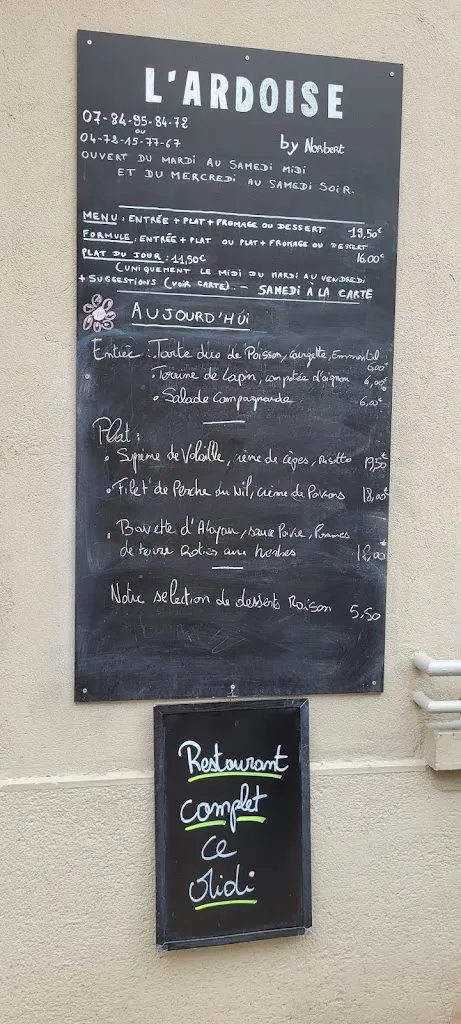 L'ARDOISE
07-84-95-84-72
ou
04-72-15-77-67
by Norbert
OUVERT DU MARDI AU SAMEDI MIDI
ET DU MERCREDI AU SAMEDI SOIR.
MENU : ENTRÉE + PLAT + FROMAGE OU DESSERT 19,50€
FORMULE : ENTRÉE + PLAT OU PLAT + FROMAGE OU DESSERT
16.00€
PLAT DU JOUR : 11,50€
(UNIQUEMENT LE MIDI DU MARDI AU VENDREDI
+ SUGGESTIONS (VOIR CARTE). - SAMEDI À LA CARTE
AUJOURD'HUI
Entrée : Tarte duo de Poisson, Courgette, Emmental
6,00€
• Terrine de Lapin, compotée d'oignon 6,00€
• Salade Campagnarde 6,00€
Plat :
• Suprême de Volaille, crème de cèpes, Risotto 19,50€
• Filet de Perche du Nil, crème de Poivrons 18,00€
• Bavette d'Aloyau, sauce Poivre, Pommes
de terre Roties aux herbes 18,00€
Notre selection de desserts Maison 5,50
Restaurant
complet
ce
Midi